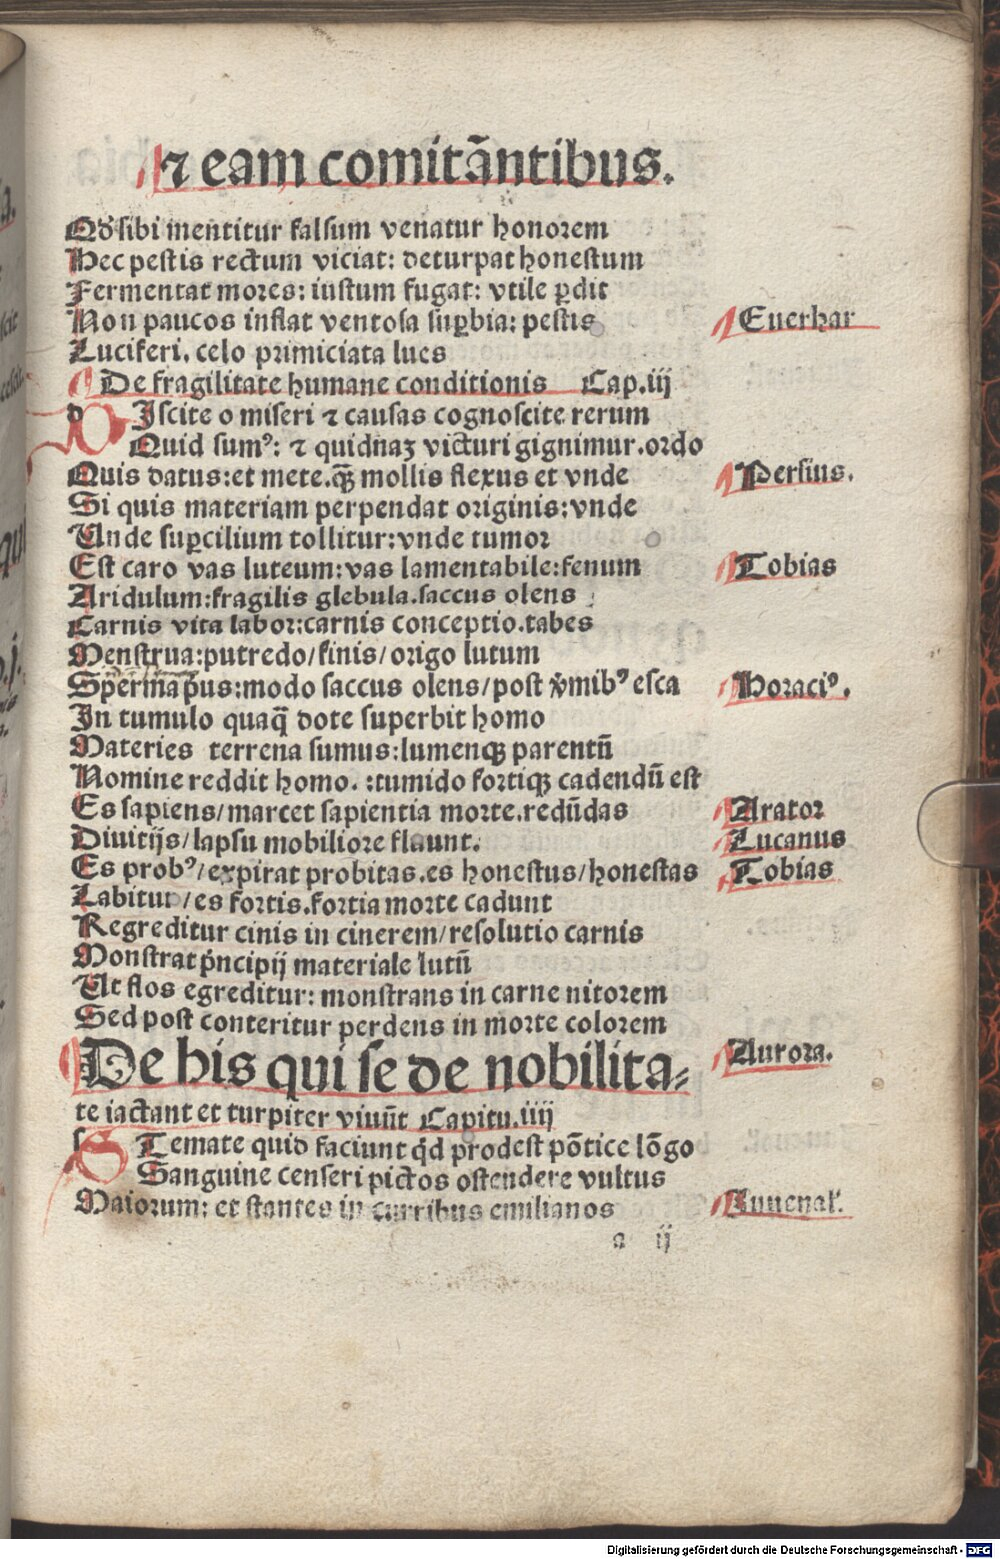 ⁊ eam comitãntibus.
Qđ sibi mentitur falsum venatur honorem
Hec pestis rectum viciat: deturpat honestum
Fermentat mores: iustum fugat: vtile ꝑdit
Non paucos inflat ventosa suꝑbia: pestis
Euerhar
Luciferi. celo primiciata lues
De fragilitate humane conditionis Cap.iij
d Iscite o miseri ⁊ causas cognoscite rerum
Quid sumꝰ: ⁊ quidnaꝫ victuri gignimur.ordo
Quis datus:et mete.qꝫ̃ mollis flexus et vnde
Persius.
Si quis materiam perpendat originis:vnde
Unde suꝑcilium tollitur:vnde tumor
Est caro vas luteum:vas lamentabile:fenum
Tobias
Aridulum:fragilis glebula.saccus olens
Carnis vita labor:carnis conceptio.tabes
Menstrua:putredo/finis/origo lutum
Sperma p̃us:modo saccus olens/post v̓mibꝰ esca
Horaciꝰ.
In tumulo quaq̃ dote superbit homo
Materies terrena sumus:lumenqꝫ parentũ
Nomine reddit homo. :tumido fortiqꝫ cadendũ est
Es sapiens/marcet sapientia morte.redũdas
Arator
Diuitijs/lapsu mobiliore fluunt.
Lucanus
Es probꝰ/expirat probitas.es honestus/honestas
Tobias
Labitur/es fortis.fortia morte cadunt
Regreditur cinis in cinerem/resolutio carnis
Monstrat p̓ncipij materiale lutũ
Ut flos egreditur: monstrans in carne nitorem
Sed post conteritur perdens in morte colorem
Aurora.
De his qui se de nobilita⸗
te iactant et turpiter viuũt Capitu.iiij
s Temate quid faciunt qd̓ prodest põtice lõgo
Sanguine censeri pictos ostendere vultus
Maiorum: et stantes in curribus emilianos
Iuuenal'.
a ij
Digitalisierung gefördert durch die Deutsche Forschungsgemeinschaft - DFG